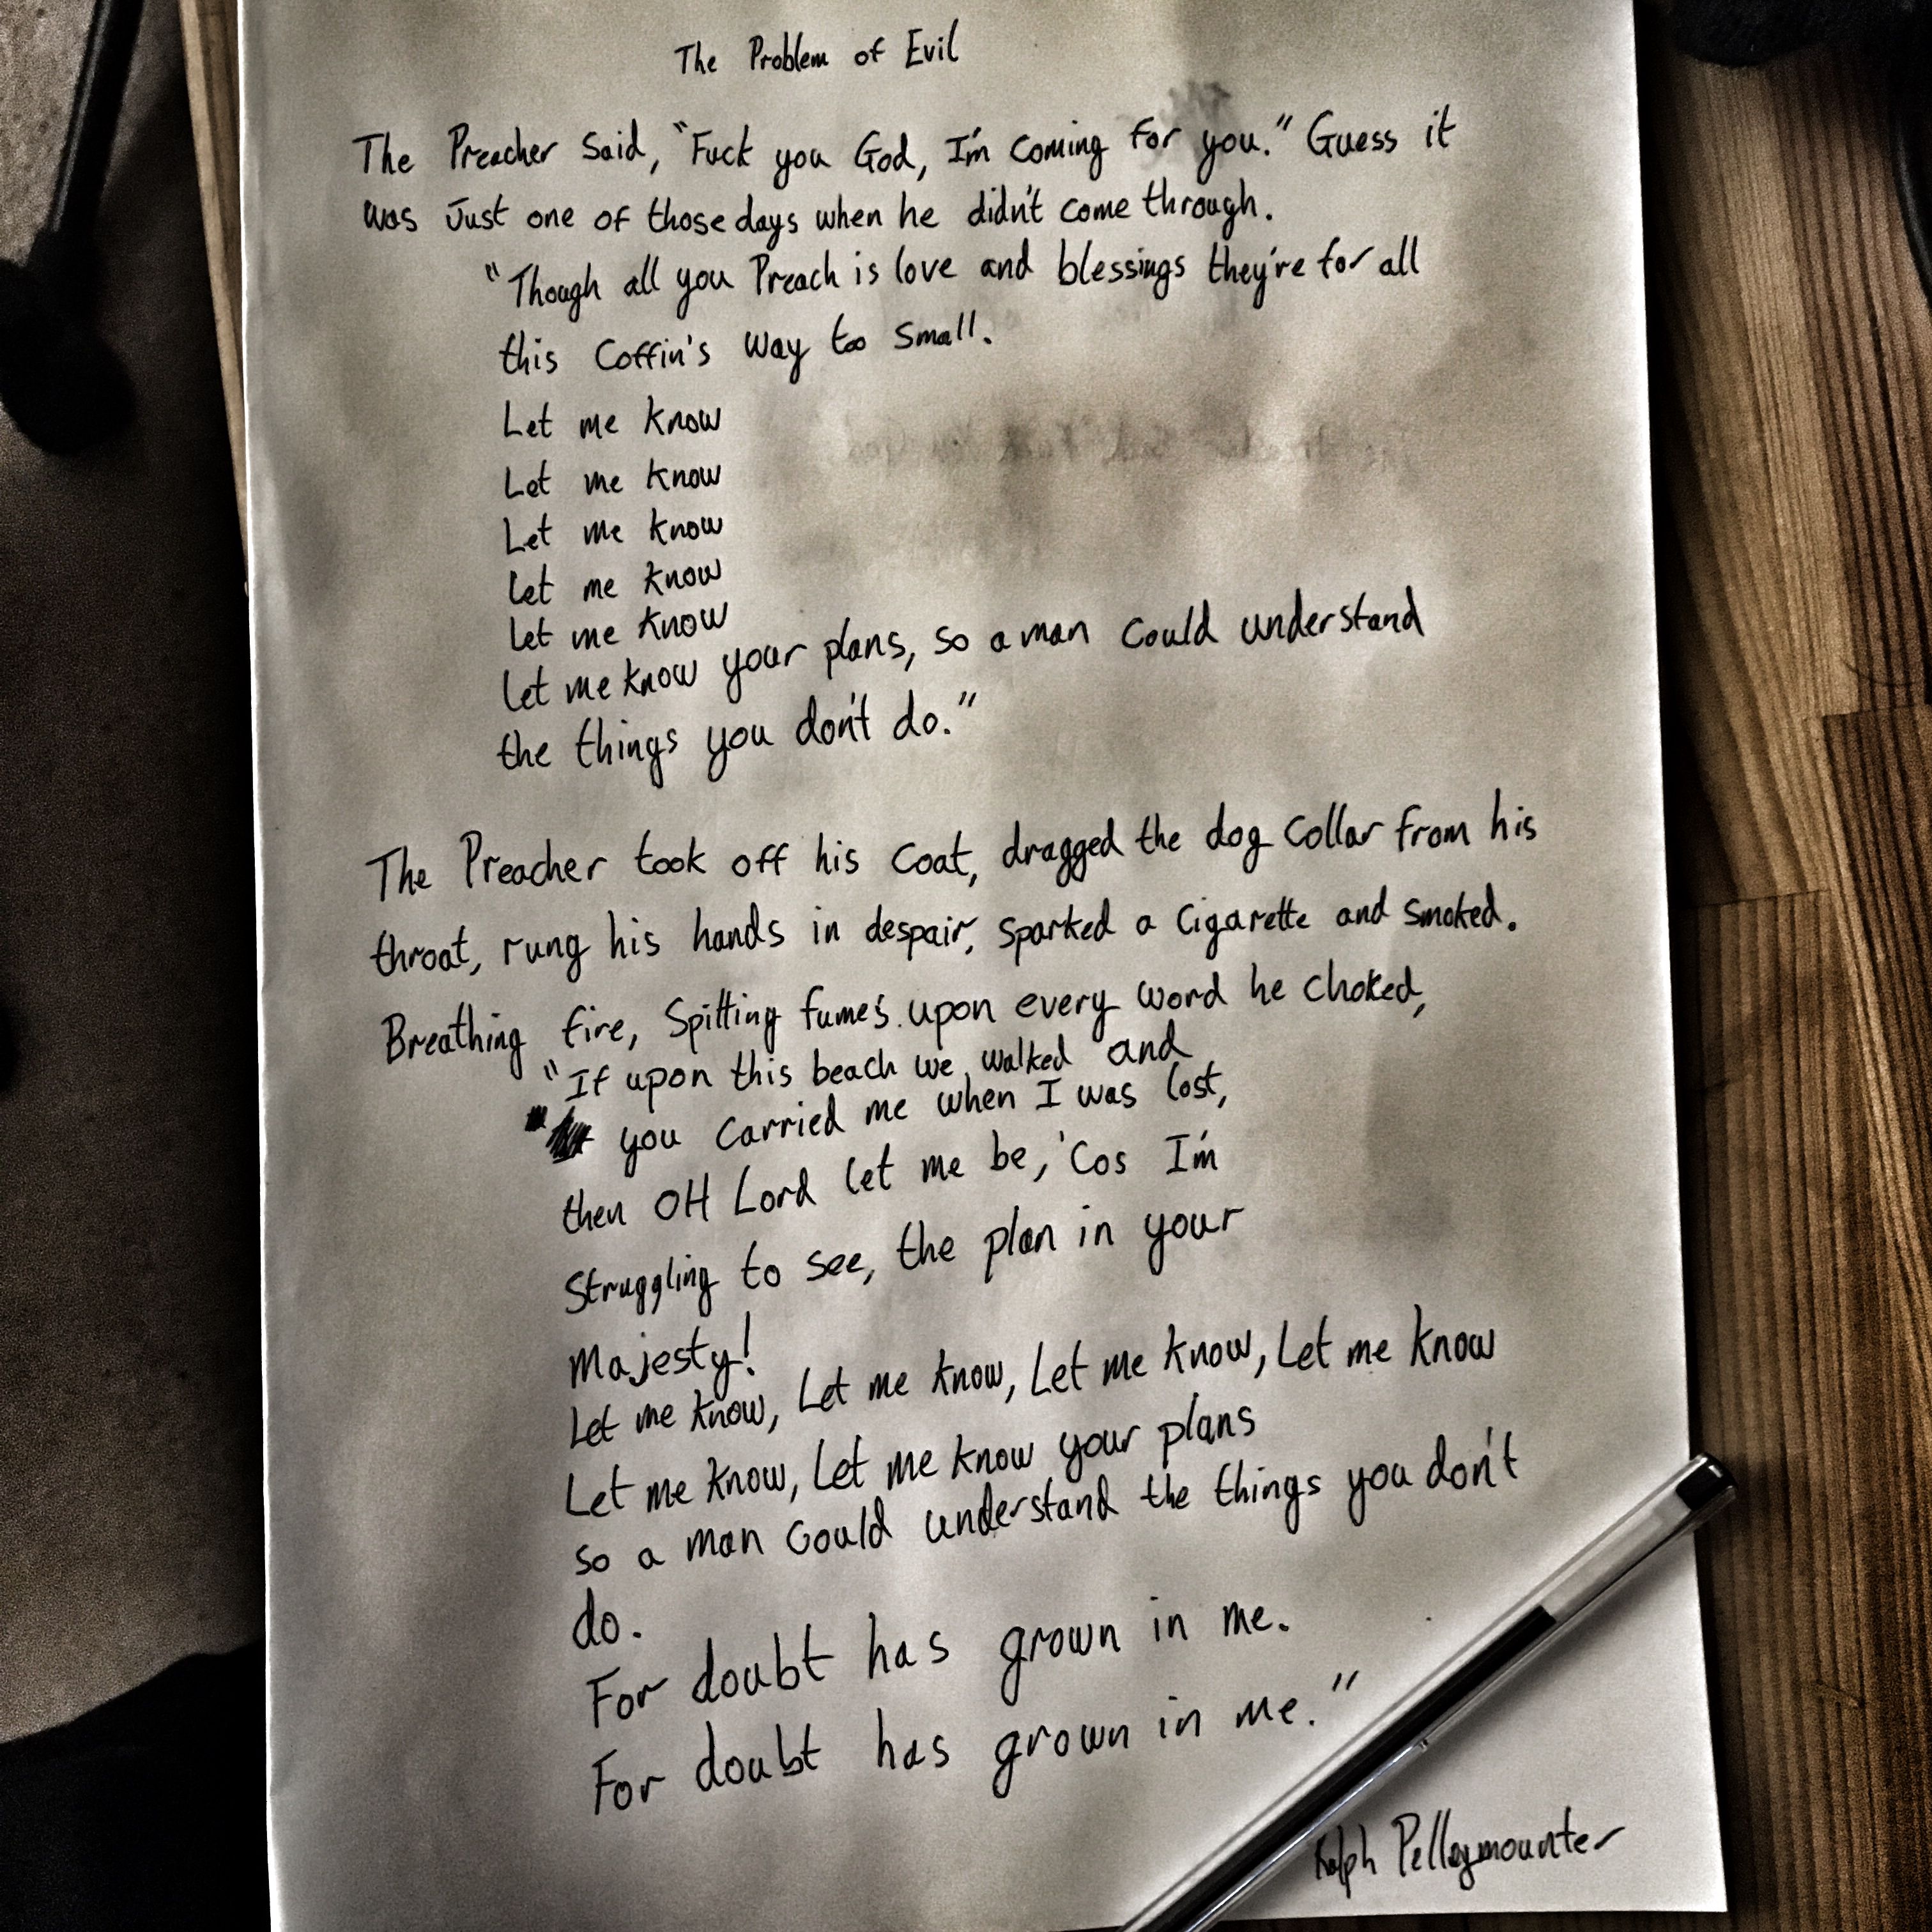 The Problem of Evil
The Preacher Said, "Fuck you God, I'm coming for you." Guess it
was Just one of those days when he didn't come through.
"Though all you Preach is love and blessings they're for all
this Coffin's Way too Small.
Let me know
Let me know
Let me know
Let me know
Let me know
Let me know your plans, so a man could understand
the things you don't do."
The Preacher took off his Coat, dragged the dog Collar from his
throat, rung his hands in despair, sparked a cigarette and smoked.
Breathing fire, Spitting fume's upon every word he choked,
"If upon this beach we walked and
you carried me when I was lost,
then OH Lord let me be, 'Cos I'm
Struggling to see, the plan in your
Majesty!
Let me know, Let me know, Let me know, Let me know
Let me know, Let me know your plans
so a man could understand the things you don't
do.
For doubt has grown in me.
For doubt has grown in me."
Ralph Pelleymounter